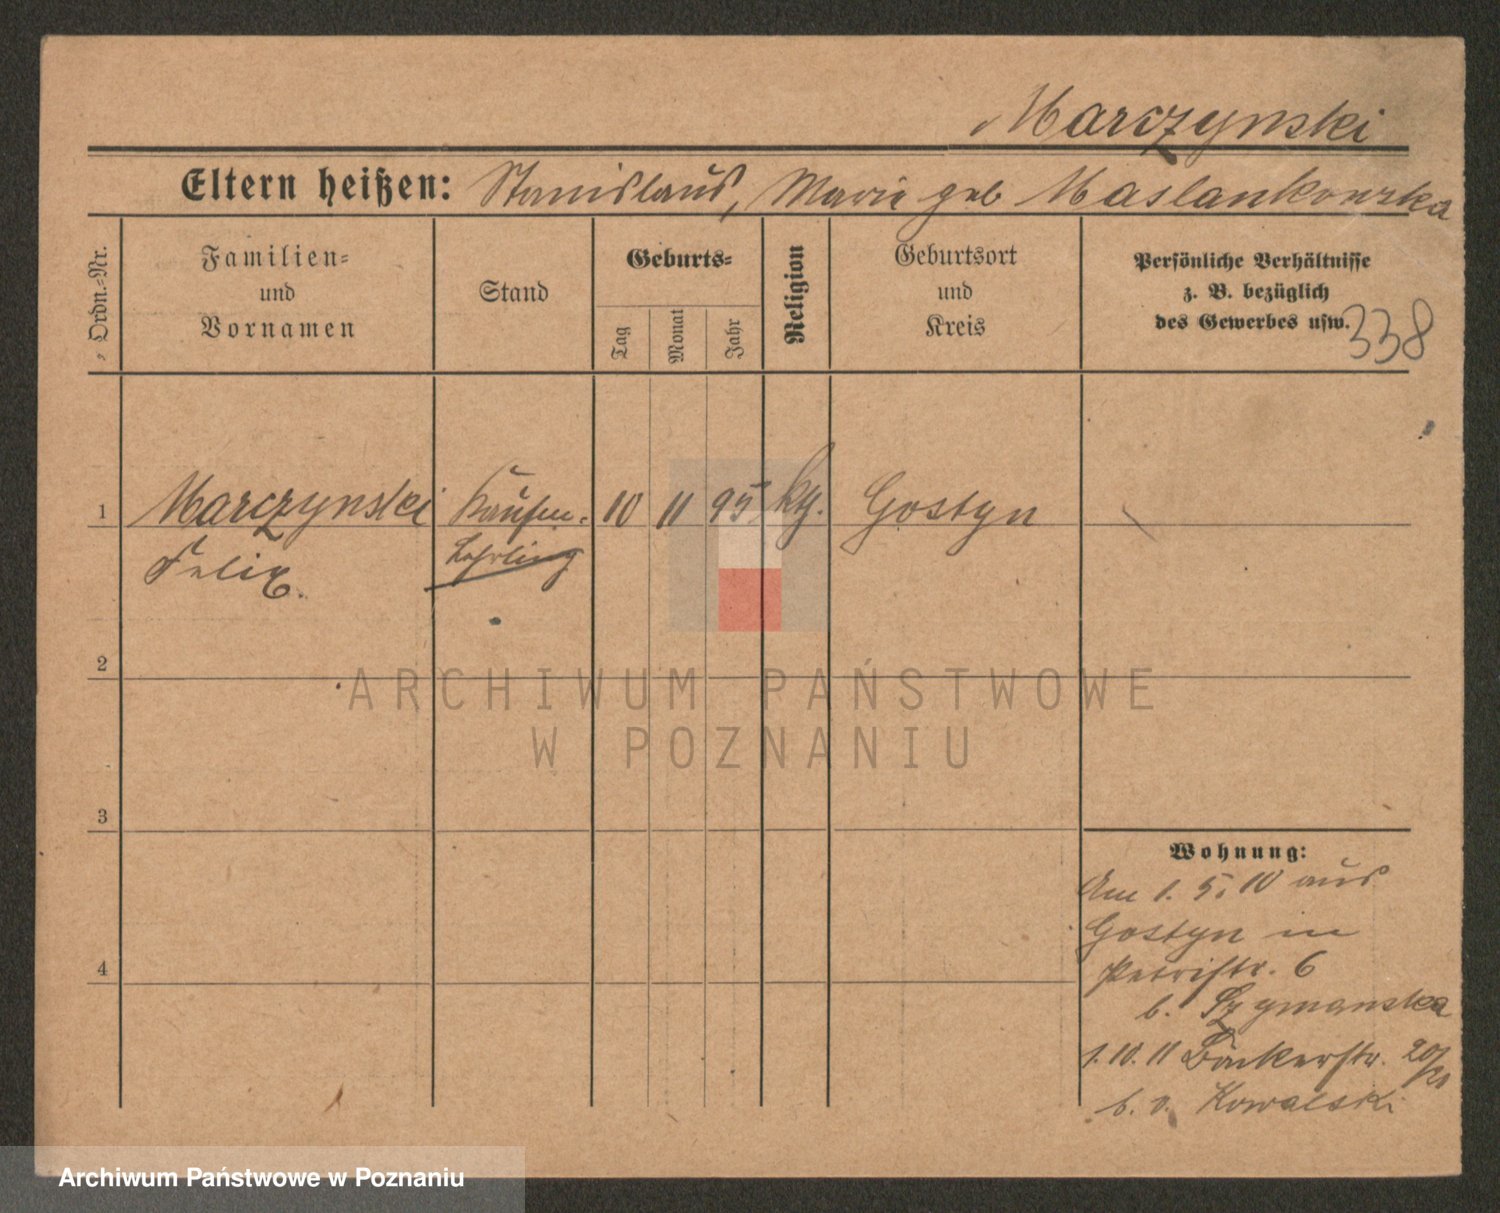 Marczynski
Eltern heißen: Stanislaus, Marie geb Maslankowska
Ordn.-Nr.
Familien-
und
Vornamen
Stand
Geburts-
Tag
Monat
Jahr
Religion
Geburtsort
und
Kreis
Persönliche Verhältnisse
z. B. bezüglich
des Gewerbes usw.
338
1 Marczynski Kaufm. 10 11 95 kth. Gostyn
Felix. Lehrling
2
3
4
Wohnung:
Am 1. 5. 10 aus
Gostyn in
Petristr. 6
b. Szymanska
1. 10. 11 Bäckerstr. 20/
b. v. Kowalski
ARCHIWUM PAŃSTWOWE
W POZNANIU
Archiwum Państwowe w Poznaniu